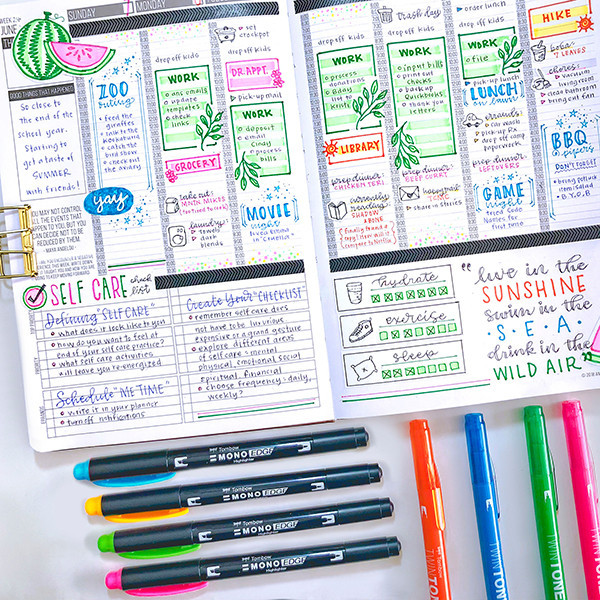 WEEK 25
JUNE
SUNDAY
MONDAY
GOOD THINGS THAT HAPPENED
So close to
the end of the
school year.
Starting to
get a taste of
SUMMER
with friends!
YOU MAY NOT CONTROL
ALL THE EVENTS THAT
HAPPEN TO YOU, BUT YOU
CAN DECIDE NOT TO BE
REDUCED BY THEM.
- MAYA ANGELOU
ZOO
outing
feed the
giraffes
walk to the
Kookaburra
catch the
bird show
check out
the aviary
yay
drop off kids
WORK
ans emails
update
check
links
GROCERY
take out:
laundry:
towels
dark
blends
set
crockpot
drop off kids
DR. APPT.
pick-up mail
WORK
deposit
email
Cindy
process
bills
MOVIE
night
drop off kids
WORK
process
donations
LIBRARY
prep dinner:
CHICKEN TERI
currently
reading
SHADOW
trash day
drop off kids
WORK
input bills
print out
checks
backup
Quickbooks
thank you
letters
prep dinner:
BEEF CURRY
happy mail
time
order lunch
drop off kids
WORK
file
pick-up lunch
LUNCH
w/ Janet
errands
car wash
pick up Rx
drop off
camp
prep dinner:
LEFTOVERS
GAME
night
HIKE
boba:
7 LEAVES
chores:
vacuum
living room
clean bathroom
bring out fan
BBQ
DON'T FORGET
bring potluck
item, salad
B.Y.O.B
SELF CARE check list
Defining "SELFCARE"
what does it look like to you
how do you want to feel at
end of your self care practice?
what self care activities
will leave you re-energized
Schedule "ME TIME"
write it in your planner
turn off notifications
Create Your "CHECKLIST"
remember self care does
not have to be luxurious
expensive or a grand gesture
explore different areas
of self care - mental
physical, emotional, social
spiritual, financial
choose frequency - daily,
weekly?
hydrate
exercise
sleep
"live in the
SUNSHINE
swim in the
S·E·A·
drink in the
WILD AIR"
Tombow
MONO EDGE
Highlighter
Tombow
MONO EDGE
Highlighter
Tombow
MONO EDGE
Highlighter
Tombow
MONO EDGE
Highlighter
TWINTONE
TWINTONE
TWINTONE
TWINTONE